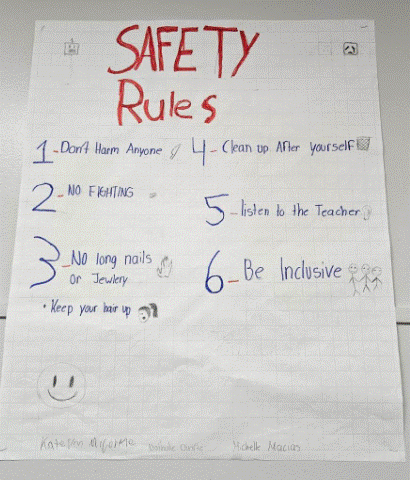 SAFETY
Rules
1-Don't Harm Anyone
2-NO FIGHTING
3-No long nails
or Jewlery
• Keep your hair up
4-Clean up After yourself
5-listen to the Teacher
6-Be Inclusive
Michelle Macias